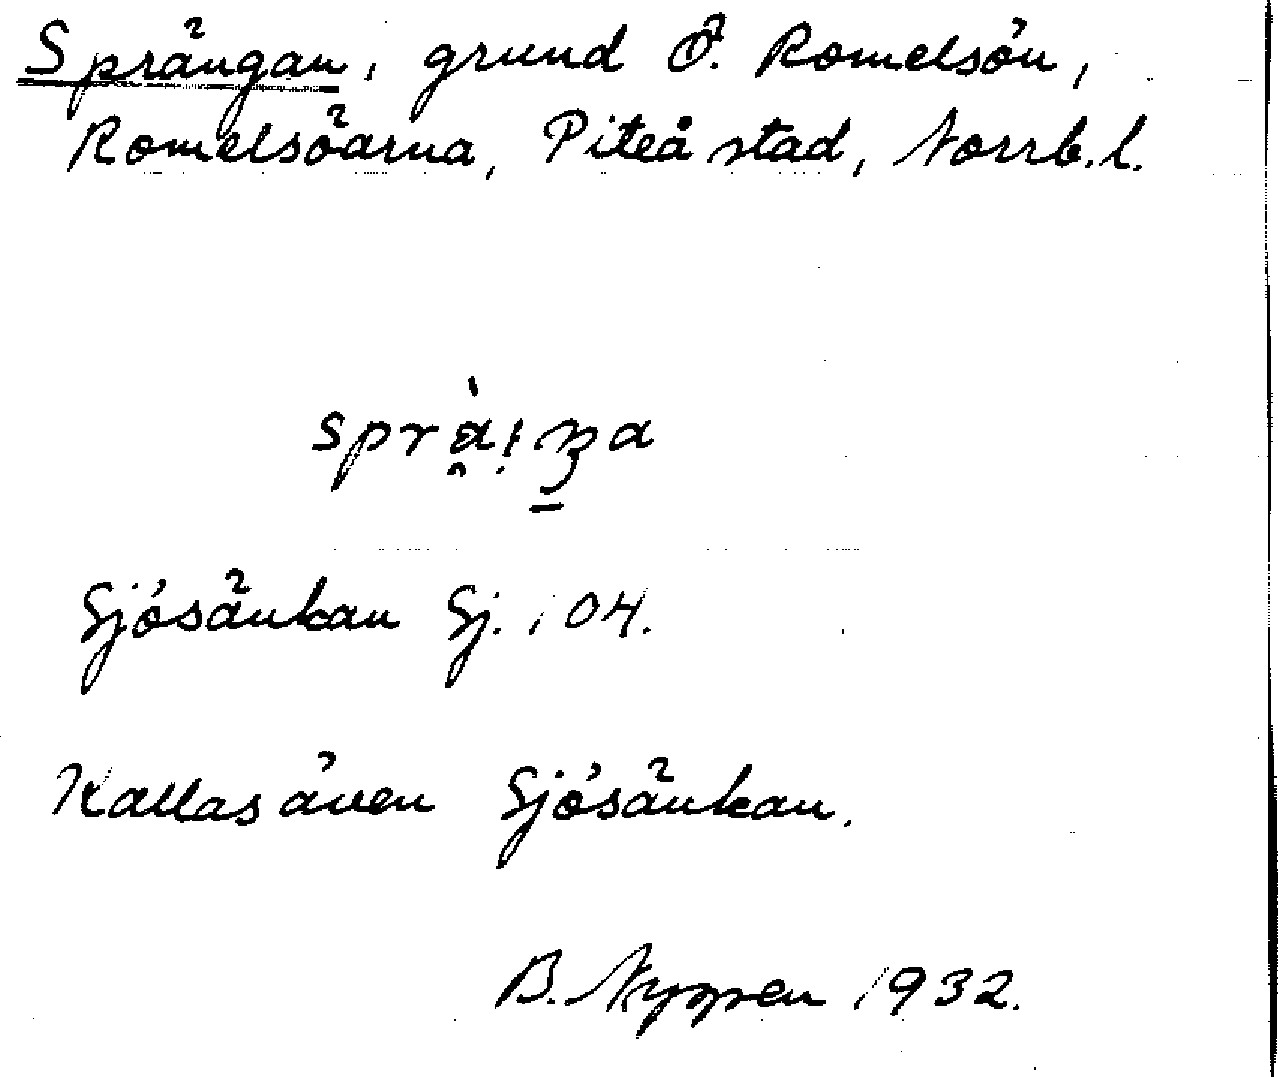 Sprängan, grund Ö. Romelsön,
Romelsöarna, Piteå stad, Norrb. l.
Sjösänkan Sj. 104.
Kallas även Sjösänkan.
B. 1932.